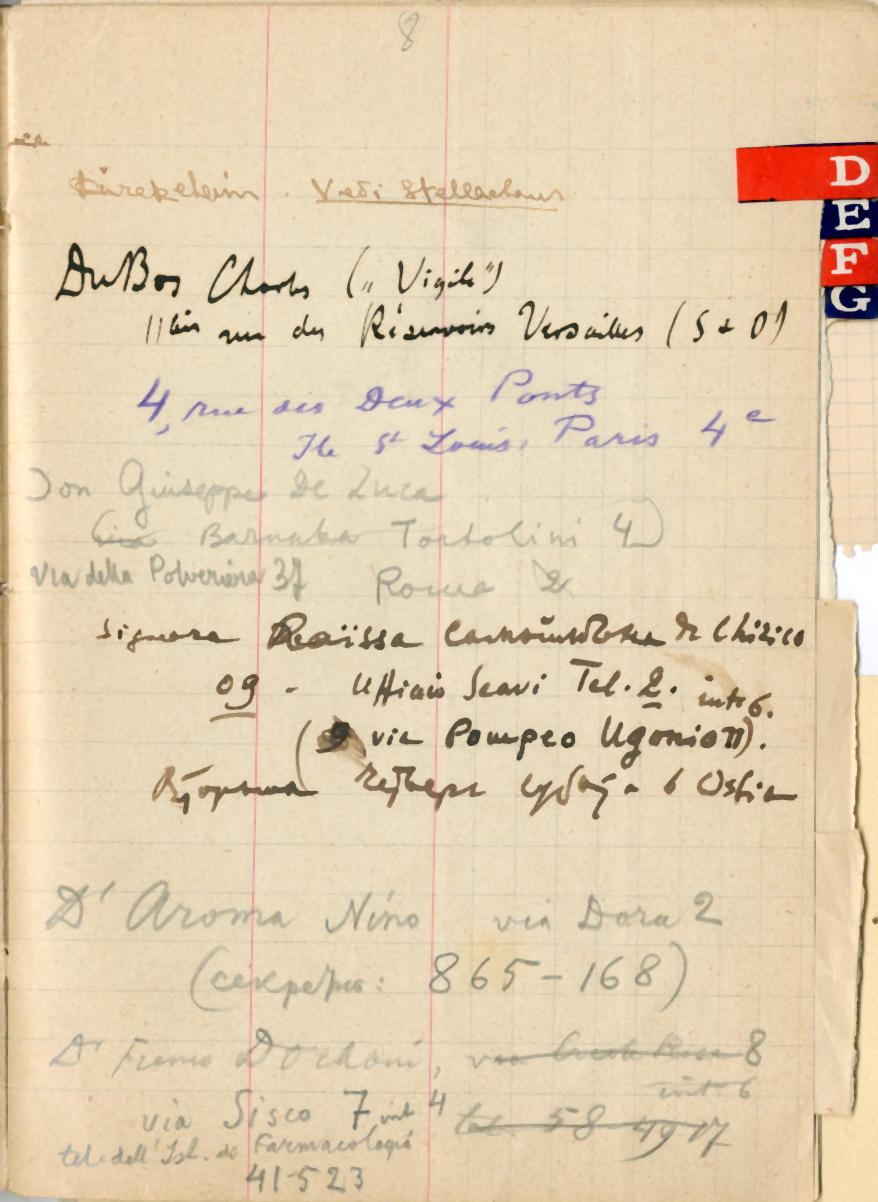 8
D
E
F
G
Vedi
DuBos Charles („Vigile")
11bis rue des Réservoirs Versailles (S & O)
4, rue des Deux Ponts
Ile St Louis. Paris 4e
Don Giuseppe De Luca
(via Barnaba Tortolini 4)
via della Polveriera 37 Roma 2
Signora Raïssa de Chirico
09 - Ufficio Scavi Tel. 2. int 6.
(9 via Pompeo Ugonio 11).
Вторник четверг субб. в Ostia
D'Aroma Nino via Dora 2
(секретарь: 865-168)
Dr 8
int. 6
via Sisco 7 int 4 tel. 58 49 17
tel. dell'Ist. di Farmacologia
41-523